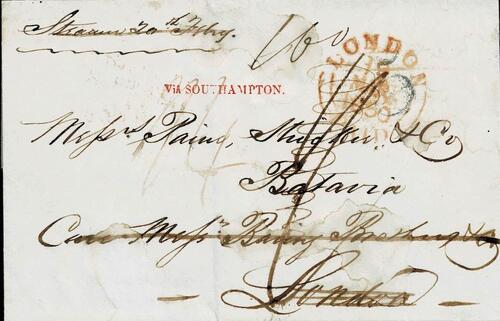 Steamer 20th Feby.
160
LONDON
PAID
Via SOUTHAMPTON.
Messrs Paine, Stricker, & Co
Batavia
Care Messrs Baring Brothers & Co
London